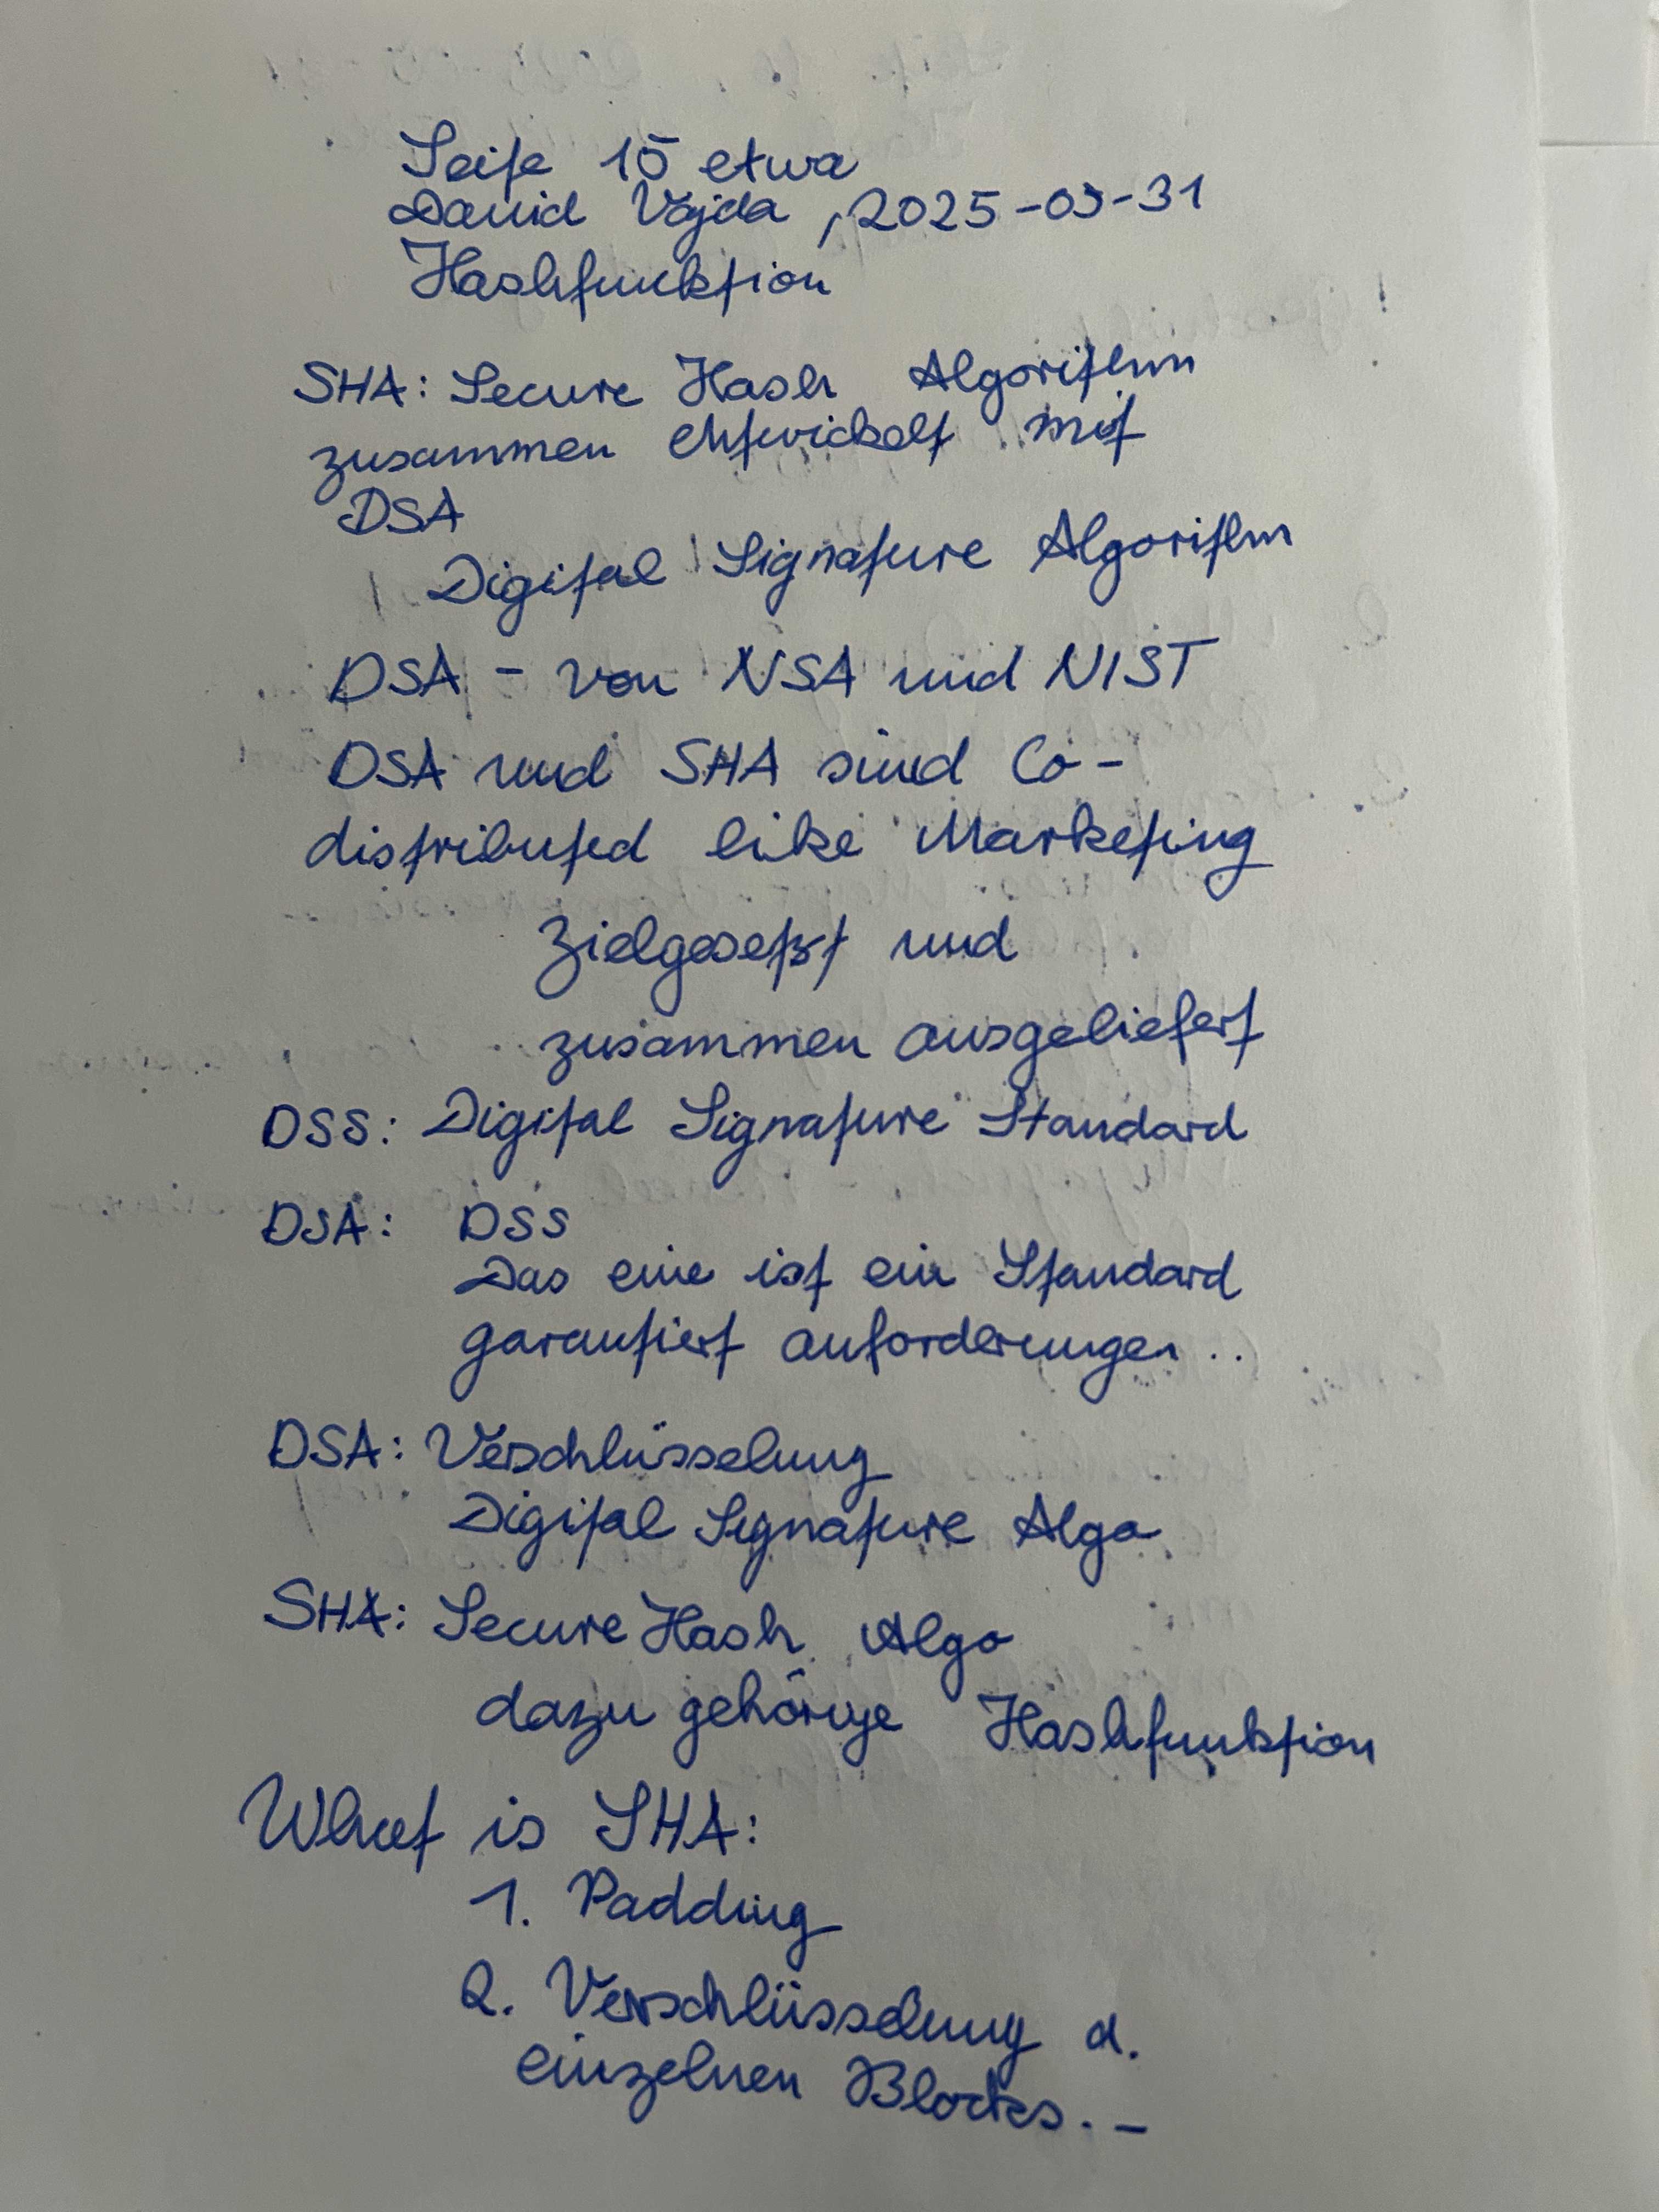 Seite 15 etwa
David Vajda, 2025-03-31
Hashfunktion
SHA: Secure Hash Algorithm
zusammen entwickelt mit
DSA
Digital Signature Algorithm
DSA - von NSA und NIST
DSA und SHA sind Co-
distributed like Marketing
Zielgesetzt und
zusammen ausgeliefert
DSS: Digital Signature Standard
DSA: DSS
Das eine ist ein Standard
garantiert anforderungen..
DSA: Verschlüsselung
Digital Signature Algo
SHA: Secure Hash Algo
dazu gehörige Hashfunktion
What is SHA:
1. Padding
2. Verschlüsselung d.
einzelnen Blocks. -